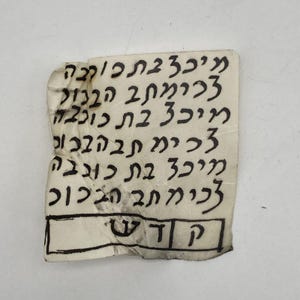 מיכל בת כוכבה
לכימ תב הבכוכ
מיכל בת כוכבה
לכימ תב הבכוכ
מיכל בת כוכבה
לכימ תב הבכוכ
ק ד ש